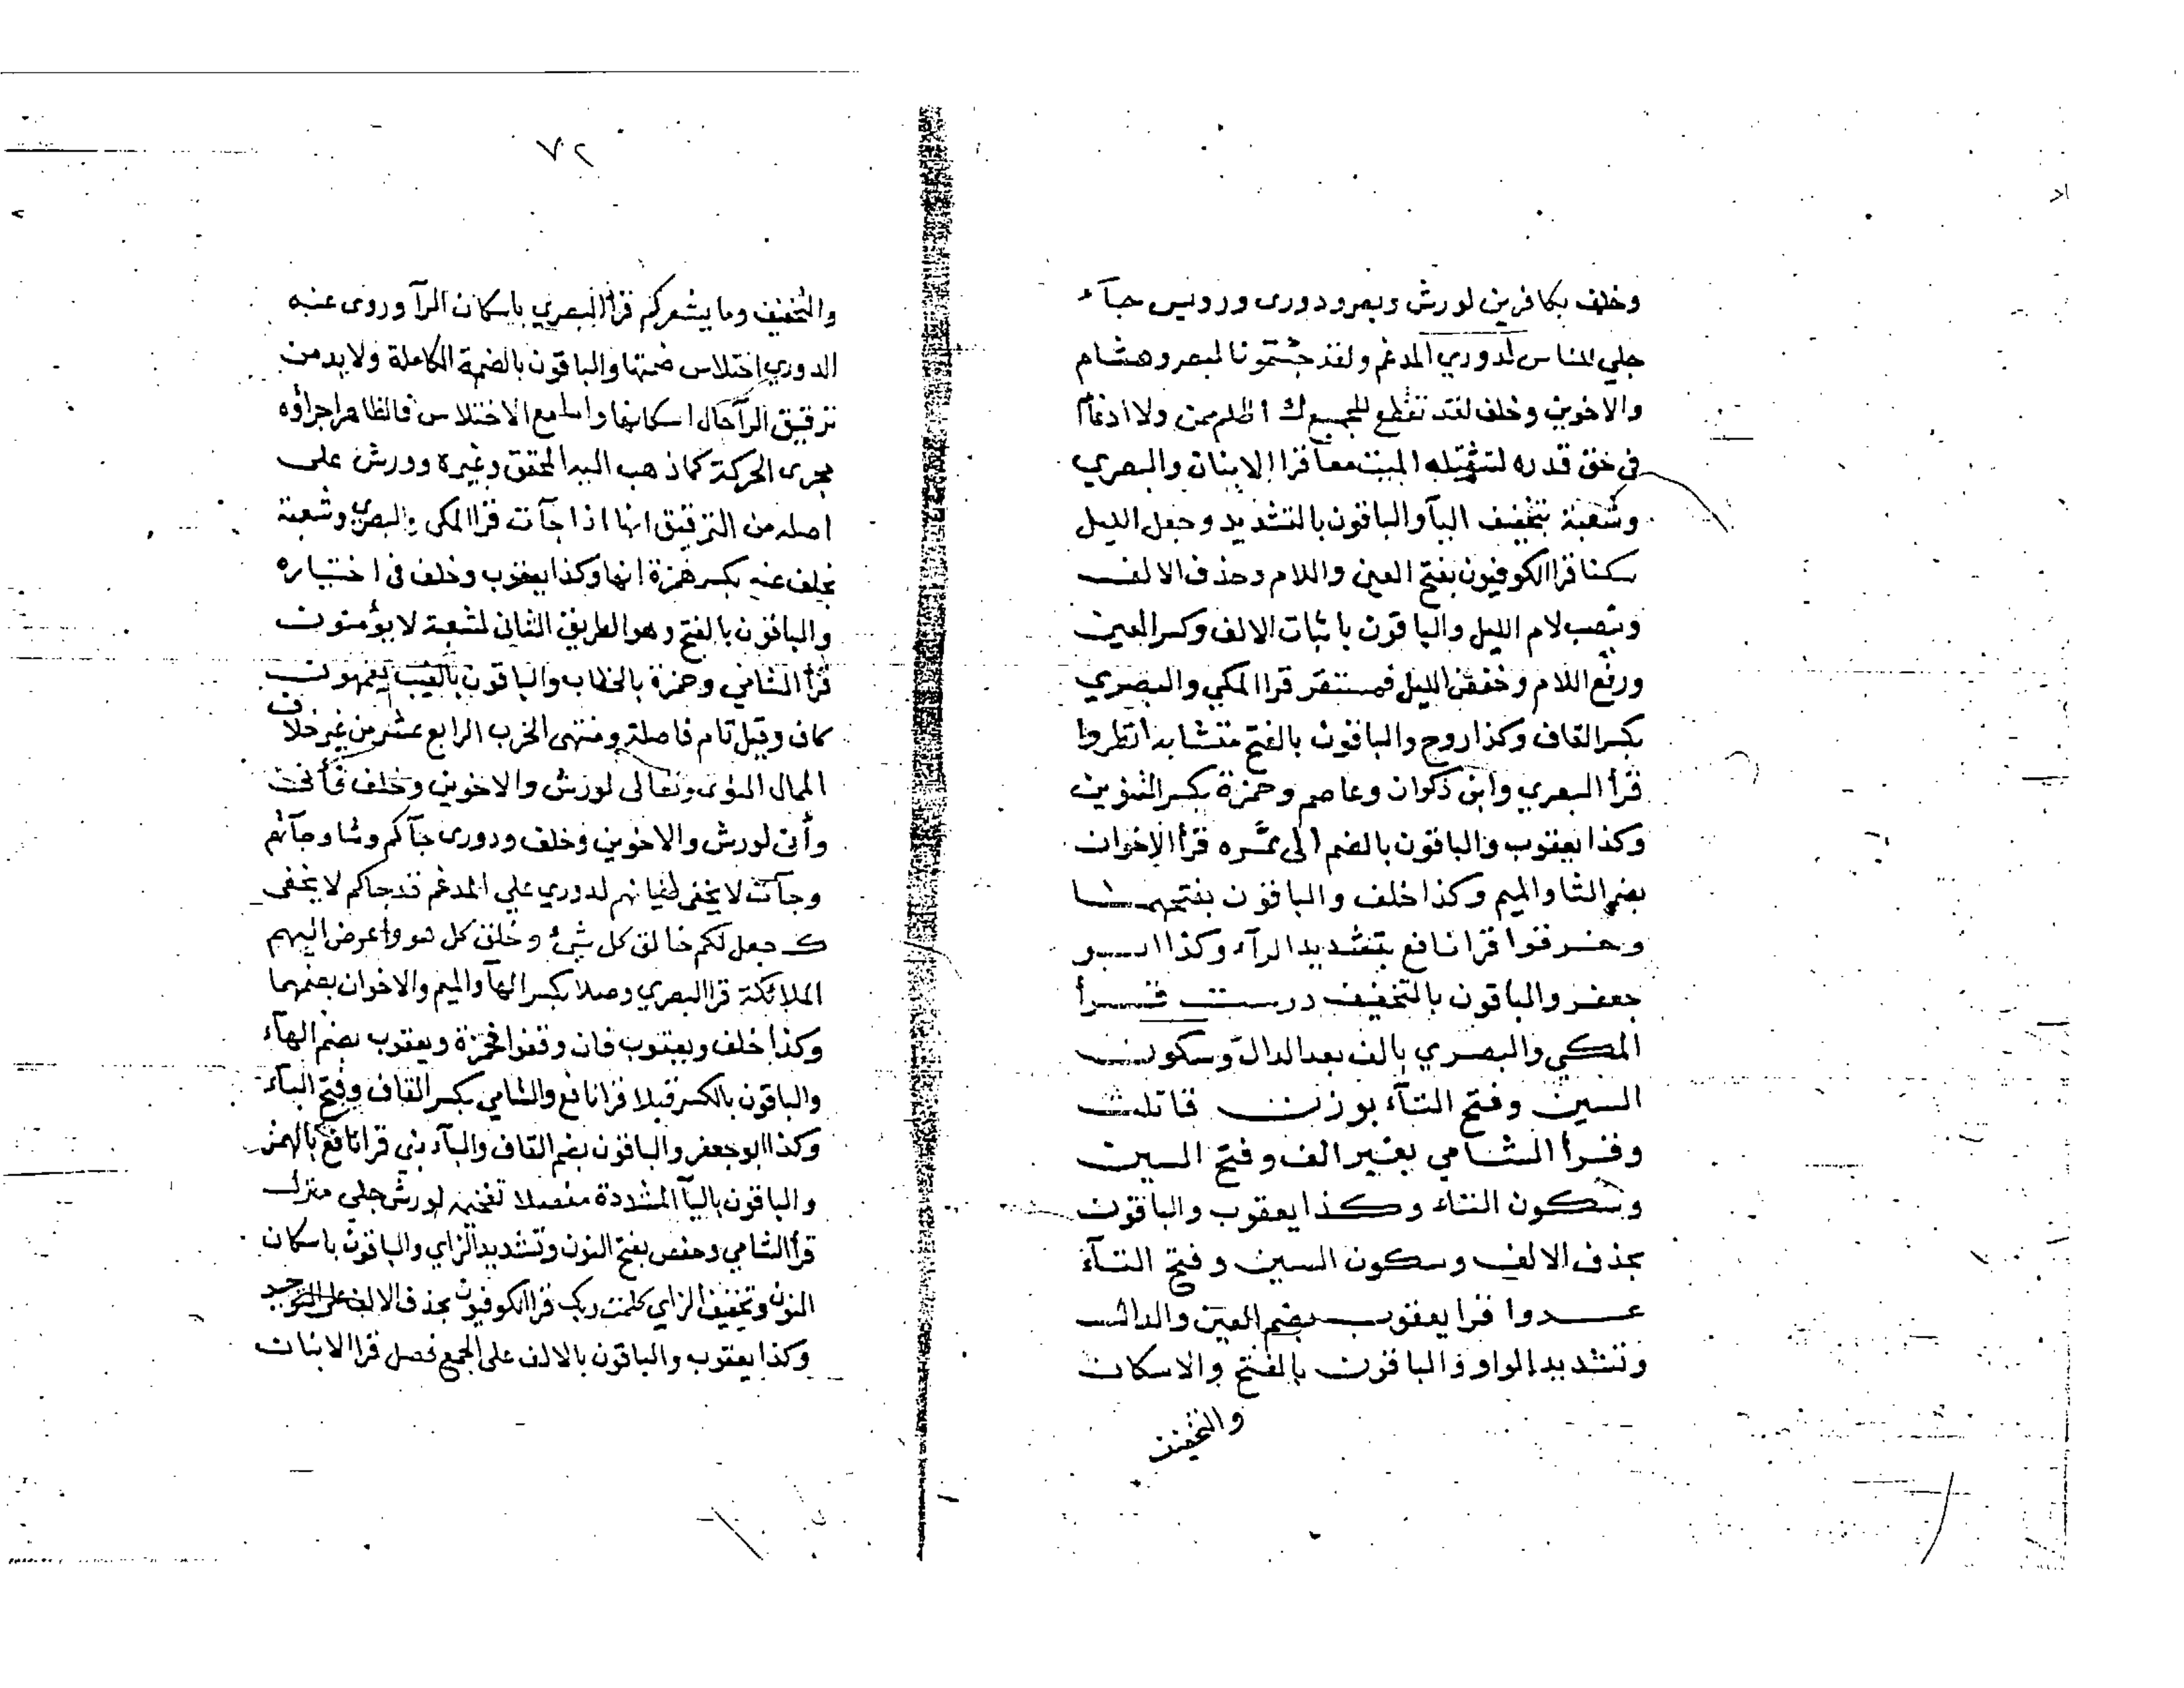 وخلف بكافرين لورش وبصرودورى ورويس جآء
جلي الناس لدوري المدغم ولقد جئتمونا لبصر وهشام
والاخوين وخلف لقد تقطع للجميع ك اظلم ممن ولا ادغام
فى حق قدره لتثقيله الميت معا قرا الابنان والبصري
وشعبة بتخفيف اليآ والباقون بالتشديد وجعل الليل
سكنا قرا الكوفيون بفتح العين واللام وحذف الالف
ونصب لام الليل والباقون باثبات الالف وكسر العين
ورفع اللام وخفض الليل فمستقر قرا المكي والبصري
بكسر القاف وكذا روح والباقون بالفتح متشابه انظروا
قرأ البصري وابن ذكوان وعاصم وحمزة بكسر التنوين
وكذا يعقوب والباقون بالضم الى ثمره قرأ الاخوان
بضم الثا والميم وكذا خلف والباقون بفتحهما
وخرقوا قرا نافع بتشديد الرآء وكذا ابو
جعفر والباقون بالتخفيف درست قرأ
المكي والبصري بالف بعد الدال وسكون
السين وفتح التآء بوزن قاتلت
وقرأ الشامي بغير الف وفتح السين
وسكون التاء وكذا يعقوب والباقون
بحذف الالف وسكون السين وفتح التآء
عدوا قرا يعقوب بضم العين والدال
وتشديد الواو والباقون بالفتح والاسكان
والتخفيف
٧٢
والتخفيف وما يشعركم قرا البصري باسكان الرآ وروى عنه
الدوري اختلاس ضمتها والباقون بالضمة الكاملة ولا بد من
ترقيق الرآ حال اسكانها واما مع الاختلاس فالظاهر اجراؤه
مجرى الحركة كما ذهب اليه المحقق وغيره وورش على
اصله من الترقيق انها اذا جآت قرا المكى والبصري وشعبة
بخلف عنه بكسر همزة انها وكذا يعقوب وخلف فى اختياره
والباقون بالفتح وهو الطريق الثانى لشعبة لا يؤمنون
قرأ الشامي وحمزة بالخطاب والباقون بالغيب يعمهون
كاف وقيل تام فاصلة ومنتهى الحزب الرابع عشر من غير خلاف
الممال النوى وتعالى لورش والاخوين وخلف فأنى
وأنى لورش والاخوين وخلف ودورى جآكم وشا وجآتهم
وجآت لا يخفى طغيانهم لدوري علي المدغم قد جاكم لا يخفى
ك جعل لكم خالق كل شئ وخلق كل هو وأعرض اليهم
الملائكة قرا البصري وصلا بكسر الهآ والميم والاخوان بضمهما
وكذا خلف ويعقوب فان وقفوا فحمزة ويعقوب بضم الهآء
والباقون بالكسر قبلا قرا نافع والشامي بكسر القاف وفتح البآء
وكذا ابو جعفر والباقون بضم القاف والبآء نبي قرا نافع بالهمز
والباقون باليآ المشددة مفصلا تفخيمه لورش جلي منزل
قرأ الشامي وحفص بفتح النون وتشديد الزاي والباقون باسكان
النون وتخفيف الزاي كلمت ربك قرا الكوفيون بحذف الالف على التوحيد
وكذا يعقوب والباقون بالالف على الجمع فصل قرا الابنان